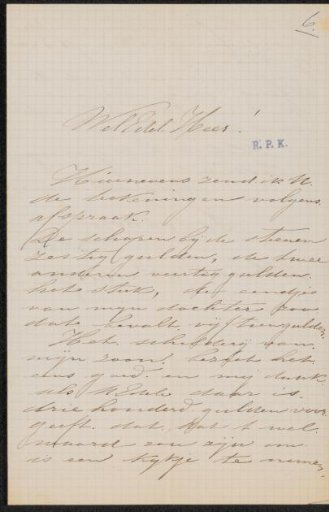 6.
WelEdel Heer!
R.P.K.
Hiernevens zend ik U
de tekeningen volgens
afspraak.
De schapen bij de stenen
zestig gulden, de twee
anderen veertig gulden
het stuk, de eendjes
van mijn dochter zoo
dat bevalt, vijftien gulden
Het schilderij van
mijn zoon! het
eens goed en mij dunkt
als UEdele daar is
drie honderd gulden voor
geeft. dat het t wel
waard zou zijn om
is een kijkje te nemen